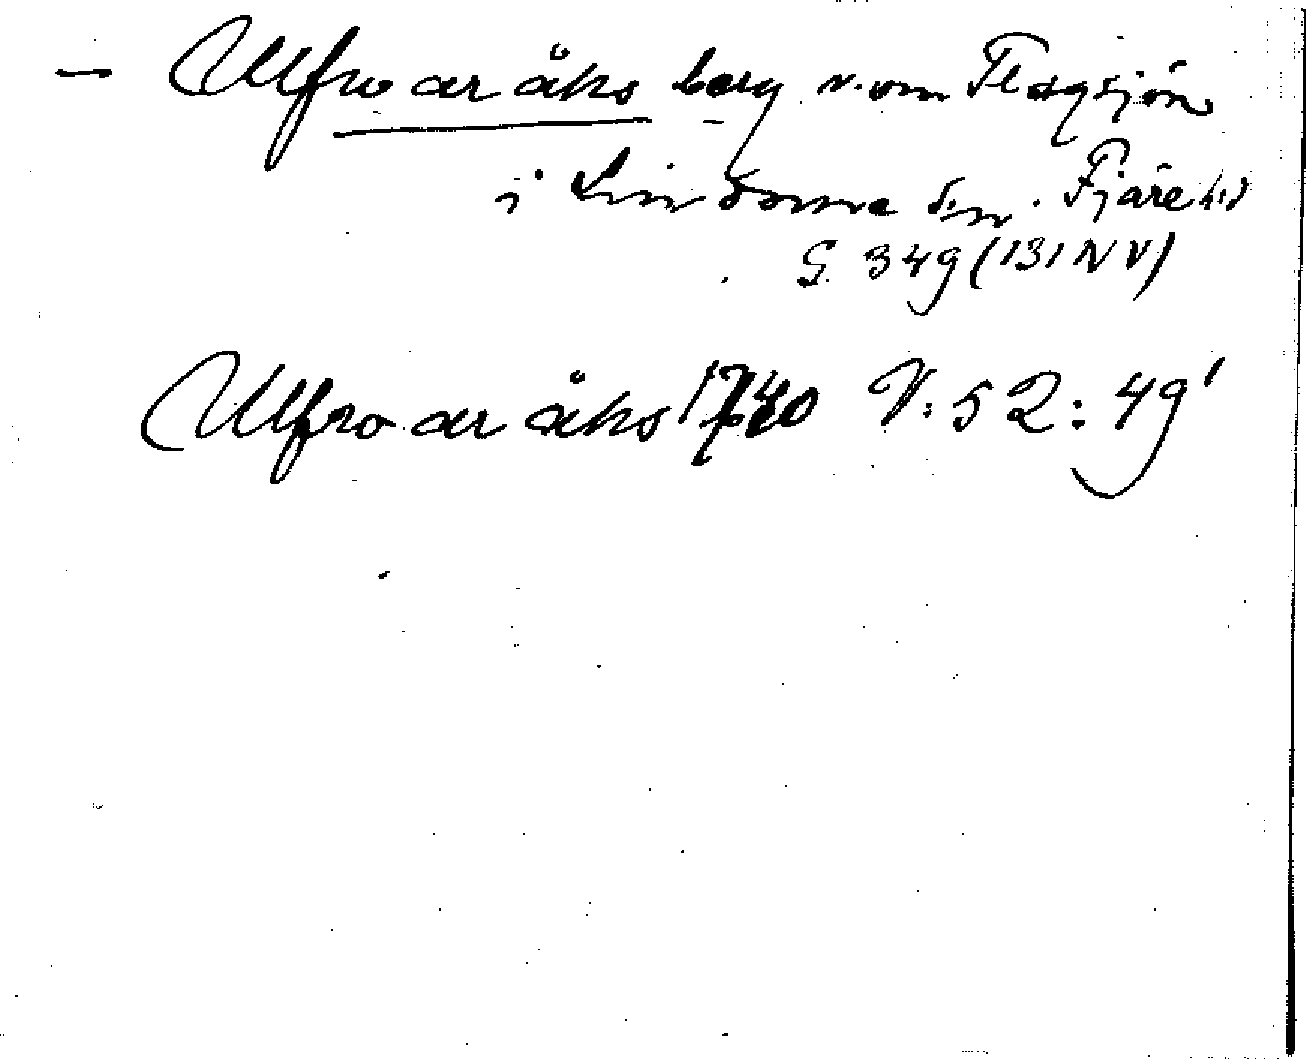 — Ulfro ar åks berg v. om Flagsjön
i Lindome sn. Fjäre hd
G. 349 (131 NV)
Ulfro ar åks 1740 V: 52: 49'